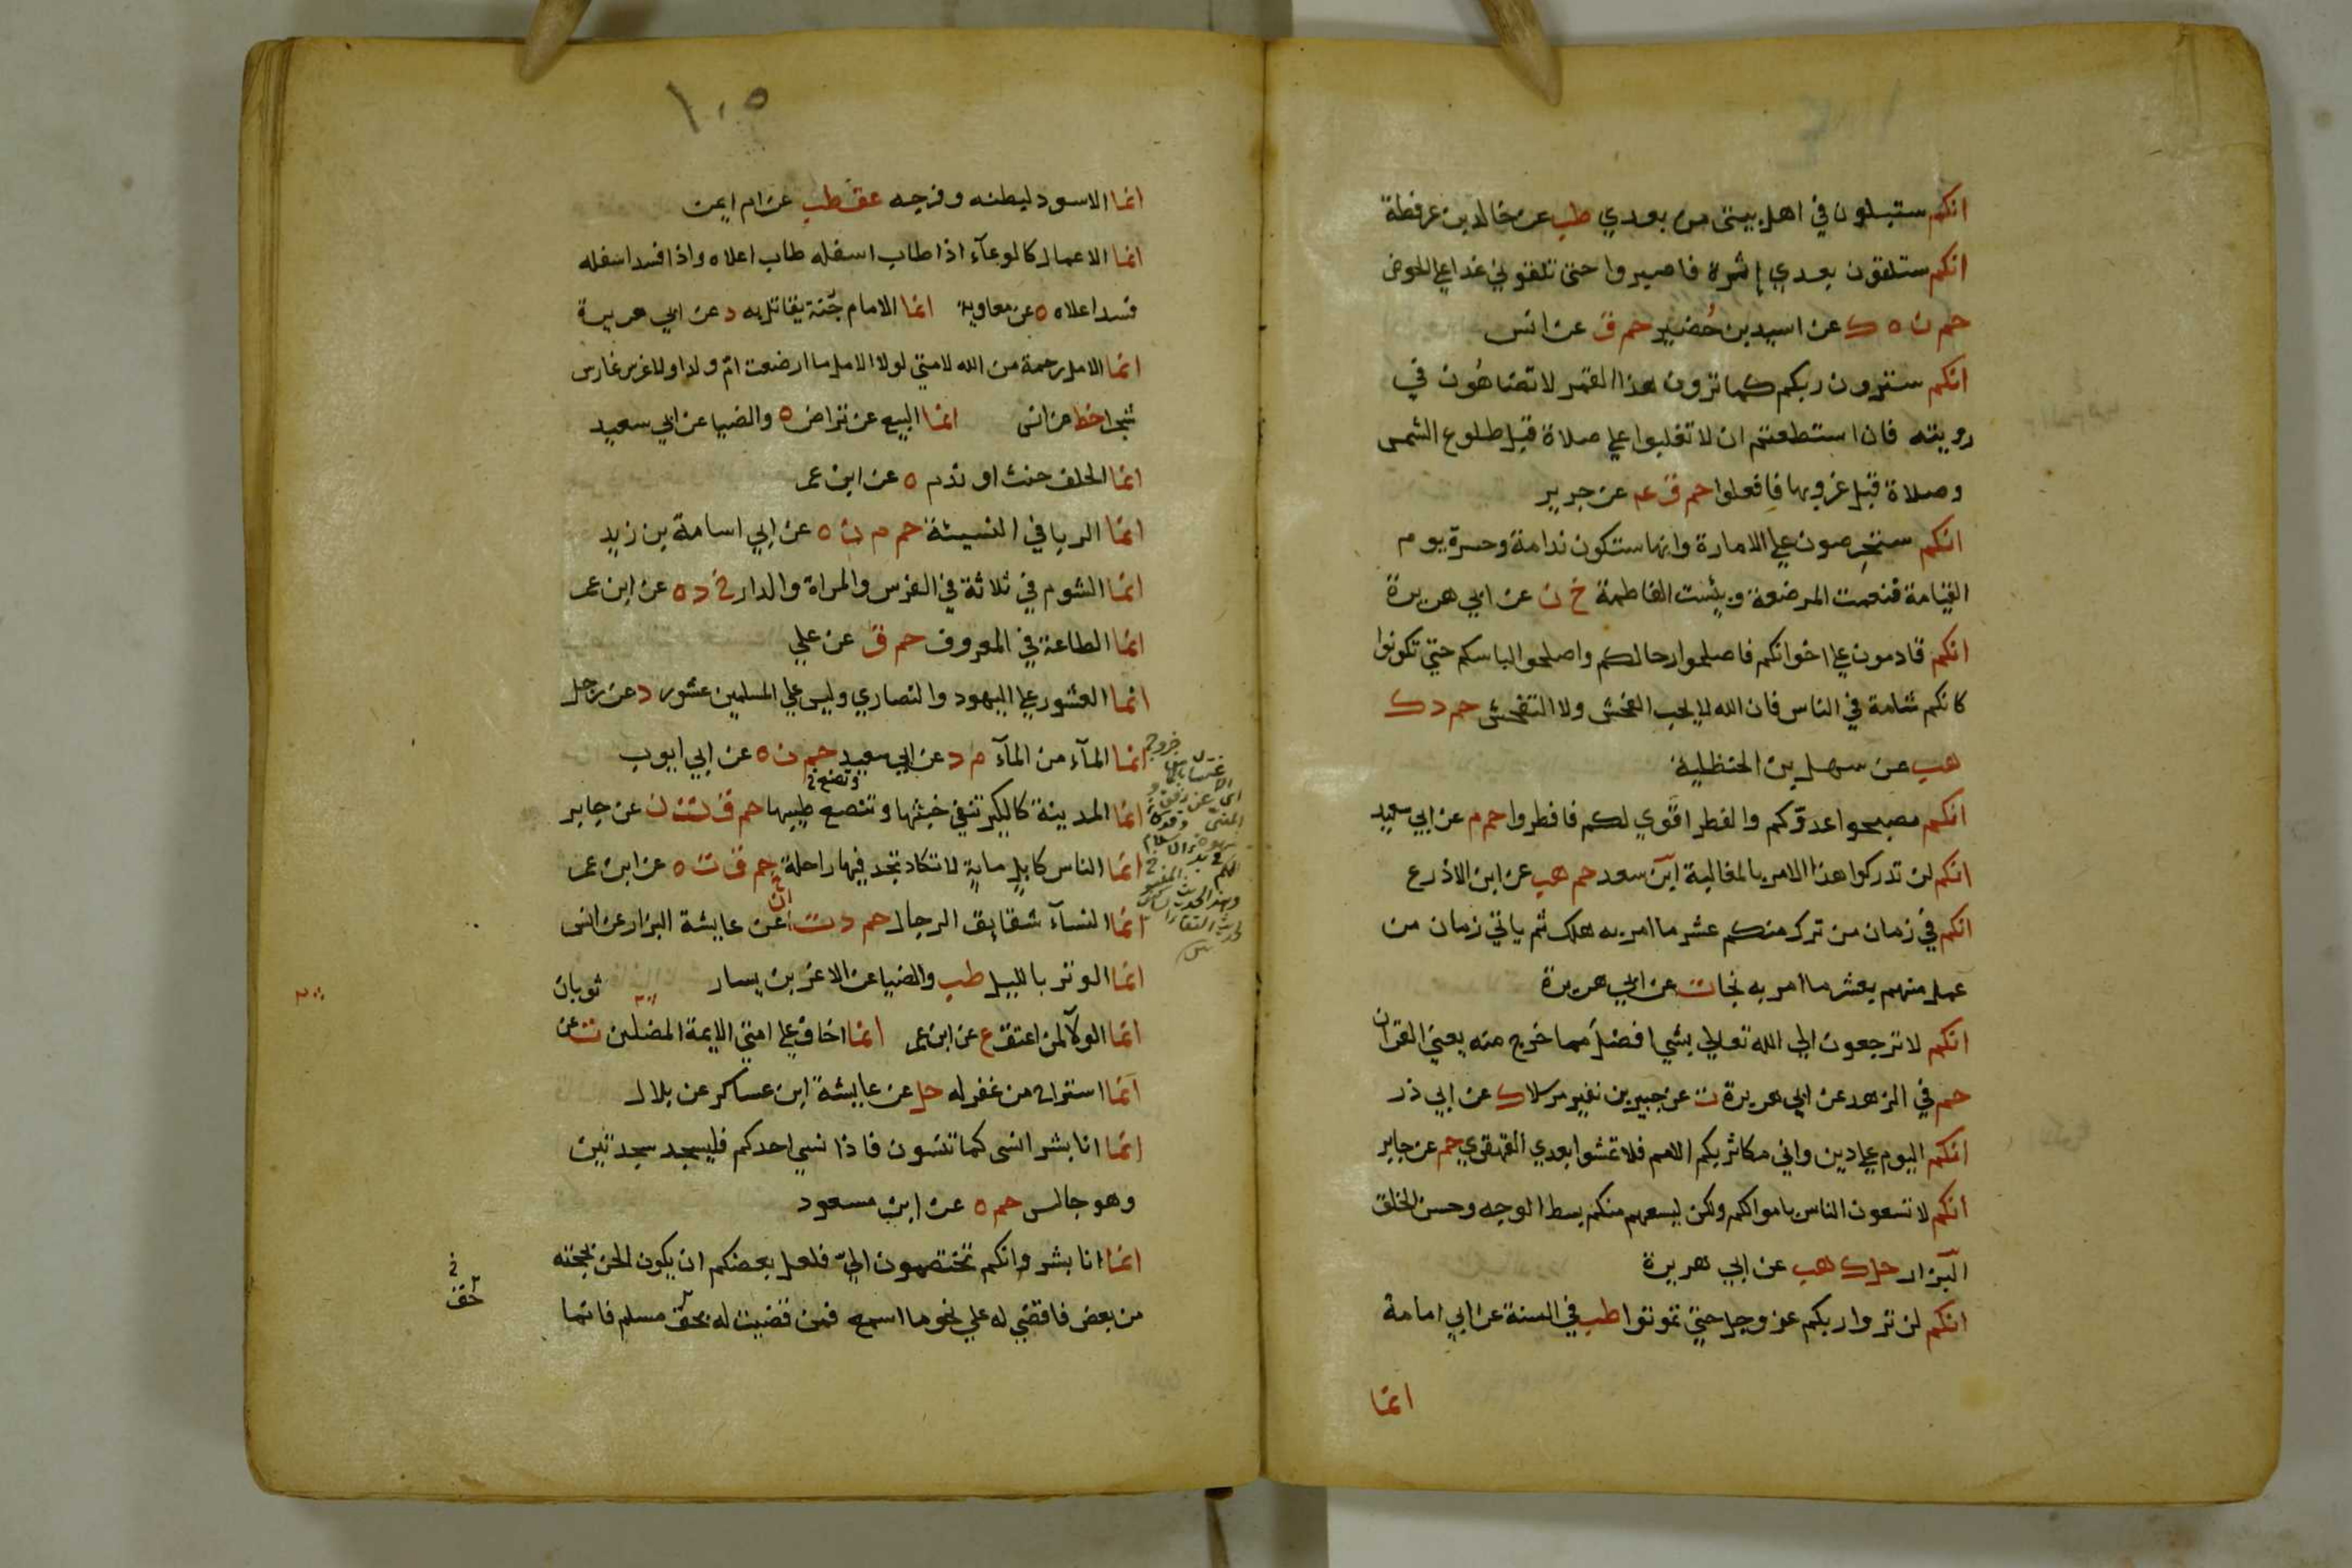 انكم ستبلون في اهل بيتي من بعدي طب عن خالد بن عرفطة
انكم ستلقون بعدي إثرة فاصبروا حتى تلقوني غدا علي الحوض
حم ت ه ك عن اسيد بن حُضير حم ق عن انس
انكم سترون ربكم كما ترون هذا القمر لا تضاهُون في
رويته فان استطعتم ان لا تغلبوا علي صلاة قبل طلوع الشمس
وصلاة قبل غروبها فافعلوا حم ق عه عن جرير
انكم ستحرِصون علي الامارة وانها ستكون ندامة وحسرة يوم
القيامة فنعمت المرضعة وبئست الفاطمة خ ن عن ابي هريرة
انكم قادمون علي اخوانكم فاصلحوا رحالكم واصلحوا لباسكم حتي تكونوا
كانكم شامة في الناس فان الله لا يحب الفحش ولا التفحش حم د ك
هب عن سهل بن الحنظلية
انكم مصبحوا عدوّكم والفطر اقوي لكم فافطروا حم م عن ابي سعيد
انكم لن تدركوا هذا الامر بالمغالبة ابن سعد حم هب عن ابن الاذرع
انكم في زمان من ترك منكم عشر ما امر به هلك ثم ياتي زمان من
عمل منهم بعشر ما امر به نجا ت عن ابي هريرة
انكم لا ترجعون الي الله تعالي بشي افضل مما خرج منه يعني القران
حم في الزهد عن ابي هريرة ت عن جبير بن نفير مرسلا ك عن ابي ذر
انكم اليوم علي دين واني مكاثر بكم الامم فلا تمشوا بعدي القهقري حم عن جابر
انكم لا تسعون الناس باموالكم ولكن ليسعهم منكم بسط الوجه وحسن الخلق
البزار حل ك هب عن ابي هريرة
انكم لن تروا ربكم عز وجل حتي تموتوا طب في السنة عن ابي امامة
انما
١٠٥
انما الاسود لبطنه وفرجه عق طب عن ام ايمن
انما الاعمال كالوعآء اذا طاب اسفله طاب اعلاه واذا فسد اسفله
فسد اعلاه ه عن معاوية انما الامام جُنة يقاتل به د عن ابي هريرة
انما الامل رحمة من الله لامتي لولا الامل ما ارضعت امّ ولدا ولا غرس غارس
شجرا خط عن انس انما البيع عن تراض ه والضيا عن ابي سعيد
انما الحلف حنث او ندم ه عن ابن عمر
انما الربا في النسيئة حم م ن ه عن ابي اسامة بن زيد
انما الشوم في ثلاثة في الفرس والمراة والدار خ د ه عن ابن عمر
انما الطاعة في المعروف حم ق عن علي
انما العشور علي اليهود والنصاري وليس علي المسلمين عشور د عن رجل
انما المآء من المآء م د عن ابي سعيد حم ن ه عن ابي ايوب
وتصنع
انما المدينة كالكير تنفي خبثها وتنصع طيبها حم ق ت ن عن جابر
انما الناس كابلٍ مايةٍ لا تكاد تجد فيها راحلة حم ق ت ه عن ابن عمر
انما النسآء شقايق الرجال حم د ت عن عايشة البزار عن انس
انما الوتر بالليل طب والضيا عن الاغر بن يسار
انما الولآ لمن اعتق ع عن ابن عمر انما اخاف علي امتي الايمة المضلين ت عن ثوبان
انما استراح من غفر له حل عن عايشة ابن عساكر عن بلال
انما انا بشر انسى كما تنسون فاذا نسي احدكم فليسجد سجدتين
وهو جالس حم ه عن ابن مسعود
انما انا بشر وانكم تختصمون اليّ فلعل بعضكم ان يكون الحن بحجته
من بعض فاقضي له علي نحو ما اسمع فمن قضيت له بحق مسلم فانما